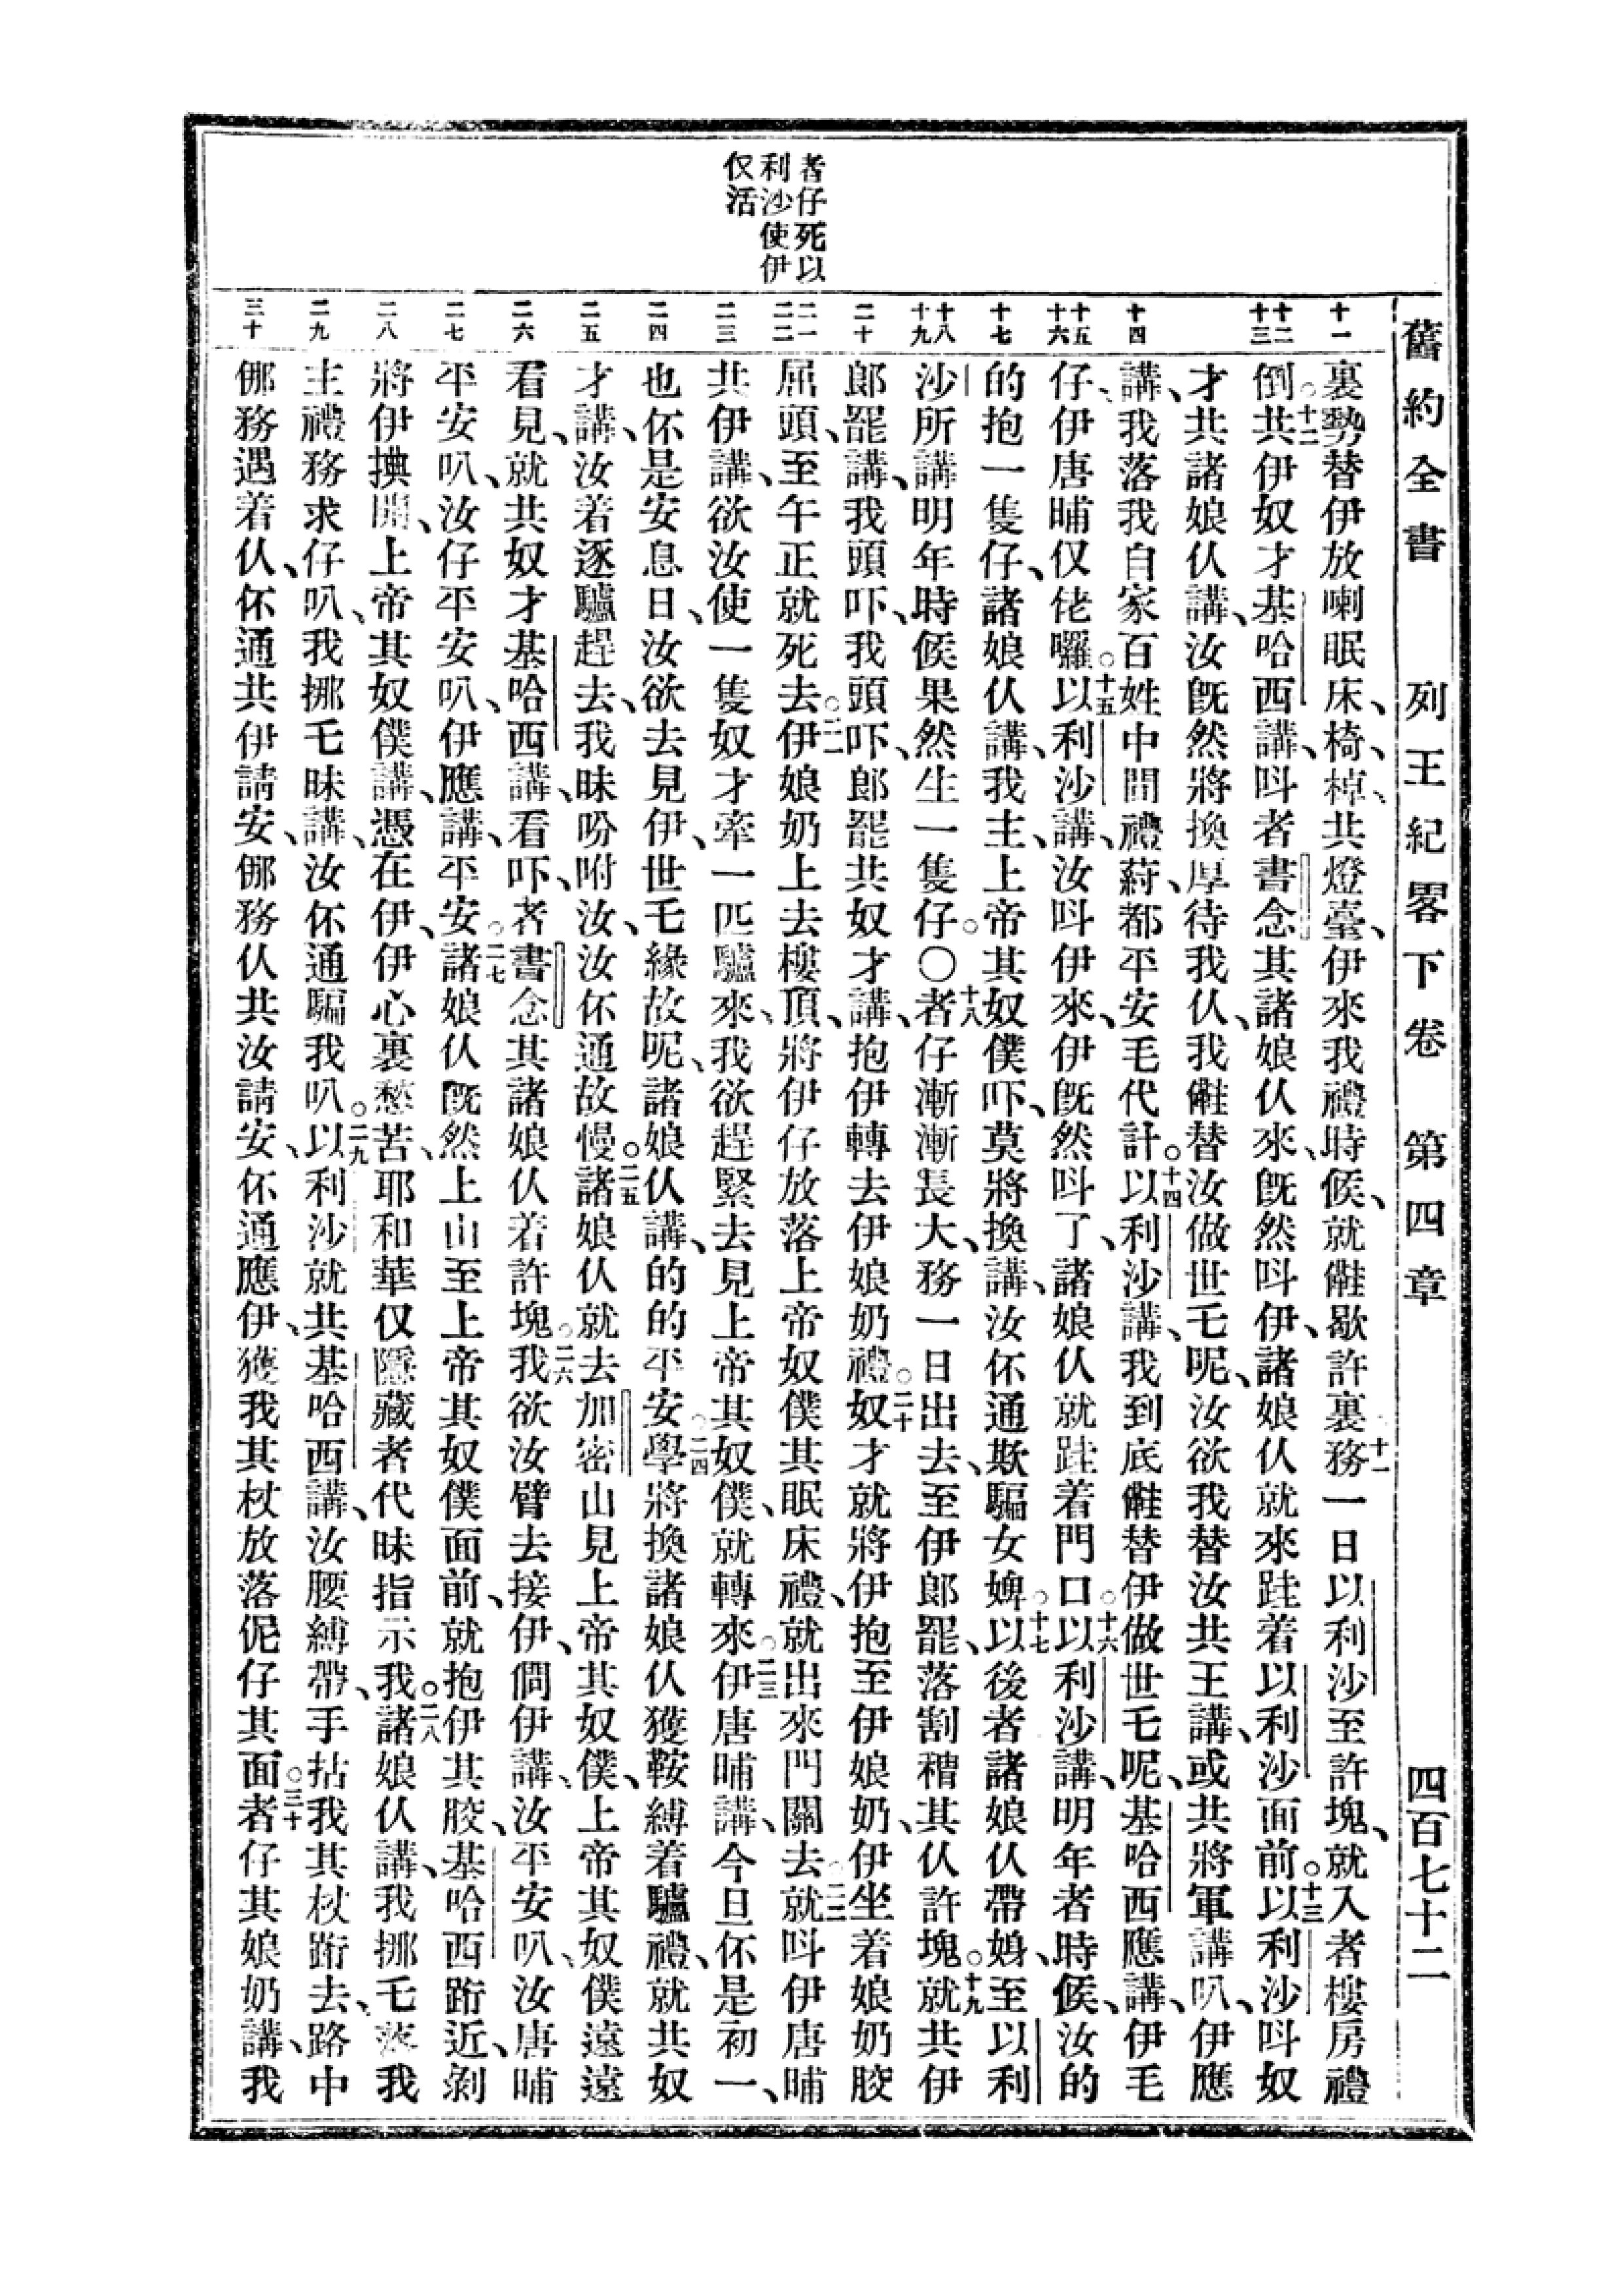 舊約全書　列王紀畧下卷　第四章　四百七十二
者仔死以
利沙使伊
仅活
十一
十二
十三
十四
十五
十六
十七
十八
十九
二十
二一
二二
二三
二四
二五
二六
二七
二八
二九
三十
裏勢替伊放喇眠床、椅、棹、共燈臺、伊來我禮時候、就㒁歇許裏。十一務一日以利沙至許塊、就入者樓房禮
倒。十二共伊奴才基哈西講、呌者書念其諸娘仈來、旣然呌伊、諸娘仈就來跬着以利沙面前。十三以利沙呌奴
才共諸娘仈講、汝旣然將換厚待我仈、我㒁替汝做世乇呢、汝欲我替汝共王講、或共將軍講叭、伊應
講、我落我自家百姓中間禮、葤都平安毛代計。十四以利沙講、我到底㒁替伊做世乇呢、基哈西應講、伊毛
仔、伊唐晡仅佬囉。十五以利沙講、汝呌伊來、伊旣然呌了、諸娘仈就跬着門口。十六以利沙講、明年者時候、汝的
的抱一隻仔、諸娘仈講、我主、上帝其奴僕吓、莫將換講、汝伓通欺騙女婢。十七以後者諸娘仈帶娚、至以利
沙所講明年時候果然生一隻仔。〇十八者仔漸漸長大、務一日出去、至伊郎罷、落割稰其仈許塊。十九就共伊
郎罷講、我頭吓、我頭吓、郎罷共奴才講、抱伊轉去伊娘奶禮。二十奴才就將伊抱至伊娘奶、伊坐着娘奶骹
屈頭、至午正就死去。二一伊娘奶上去樓頂、將伊仔放落上帝奴僕其眠床禮、就出來門關去。二二就呌伊唐晡
共伊講、欲汝使一隻奴才牽一匹驢來、我欲趕緊去見上帝其奴僕、就轉來。二三伊唐晡講、今旦伓是初一、
也伓是安息日、汝欲去見伊、世乇緣故呢、諸娘仈講、的的平安。二四學將換諸娘仈獲鞍縛着驢禮、就共奴
才講、汝着逐驢趕去、我昧吩咐汝、汝伓通故慢。二五諸娘仈就去加密山見上帝其奴僕、上帝其奴僕遠遠
看見、就共奴才基哈西講、看吓、者書念其諸娘仈着許塊。二六我欲汝臂去接伊、問伊講、汝平安叭、汝唐晡
平安叭、汝仔平安叭、伊應講、平安。二七諸娘仈旣然上山至上帝其奴僕面前、就抱伊其骹、基哈西跀近、剝
將伊㨂開、上帝其奴僕講、憑在伊、伊心裏愁苦、耶和華仅隱藏者代昧指示我。二八諸娘仈講、我挪乇落我
主禮務求仔叭、我挪乇昧講、汝伓通騙我叭。二九以利沙就共基哈西講、汝腰縛帶、手拈我其杖跀去、路中
倻務遇着仈、伓通共伊請安、倻務仈共汝請安、伓通應伊、獲我其杖放落伲仔其面。三十者仔其娘奶講、我